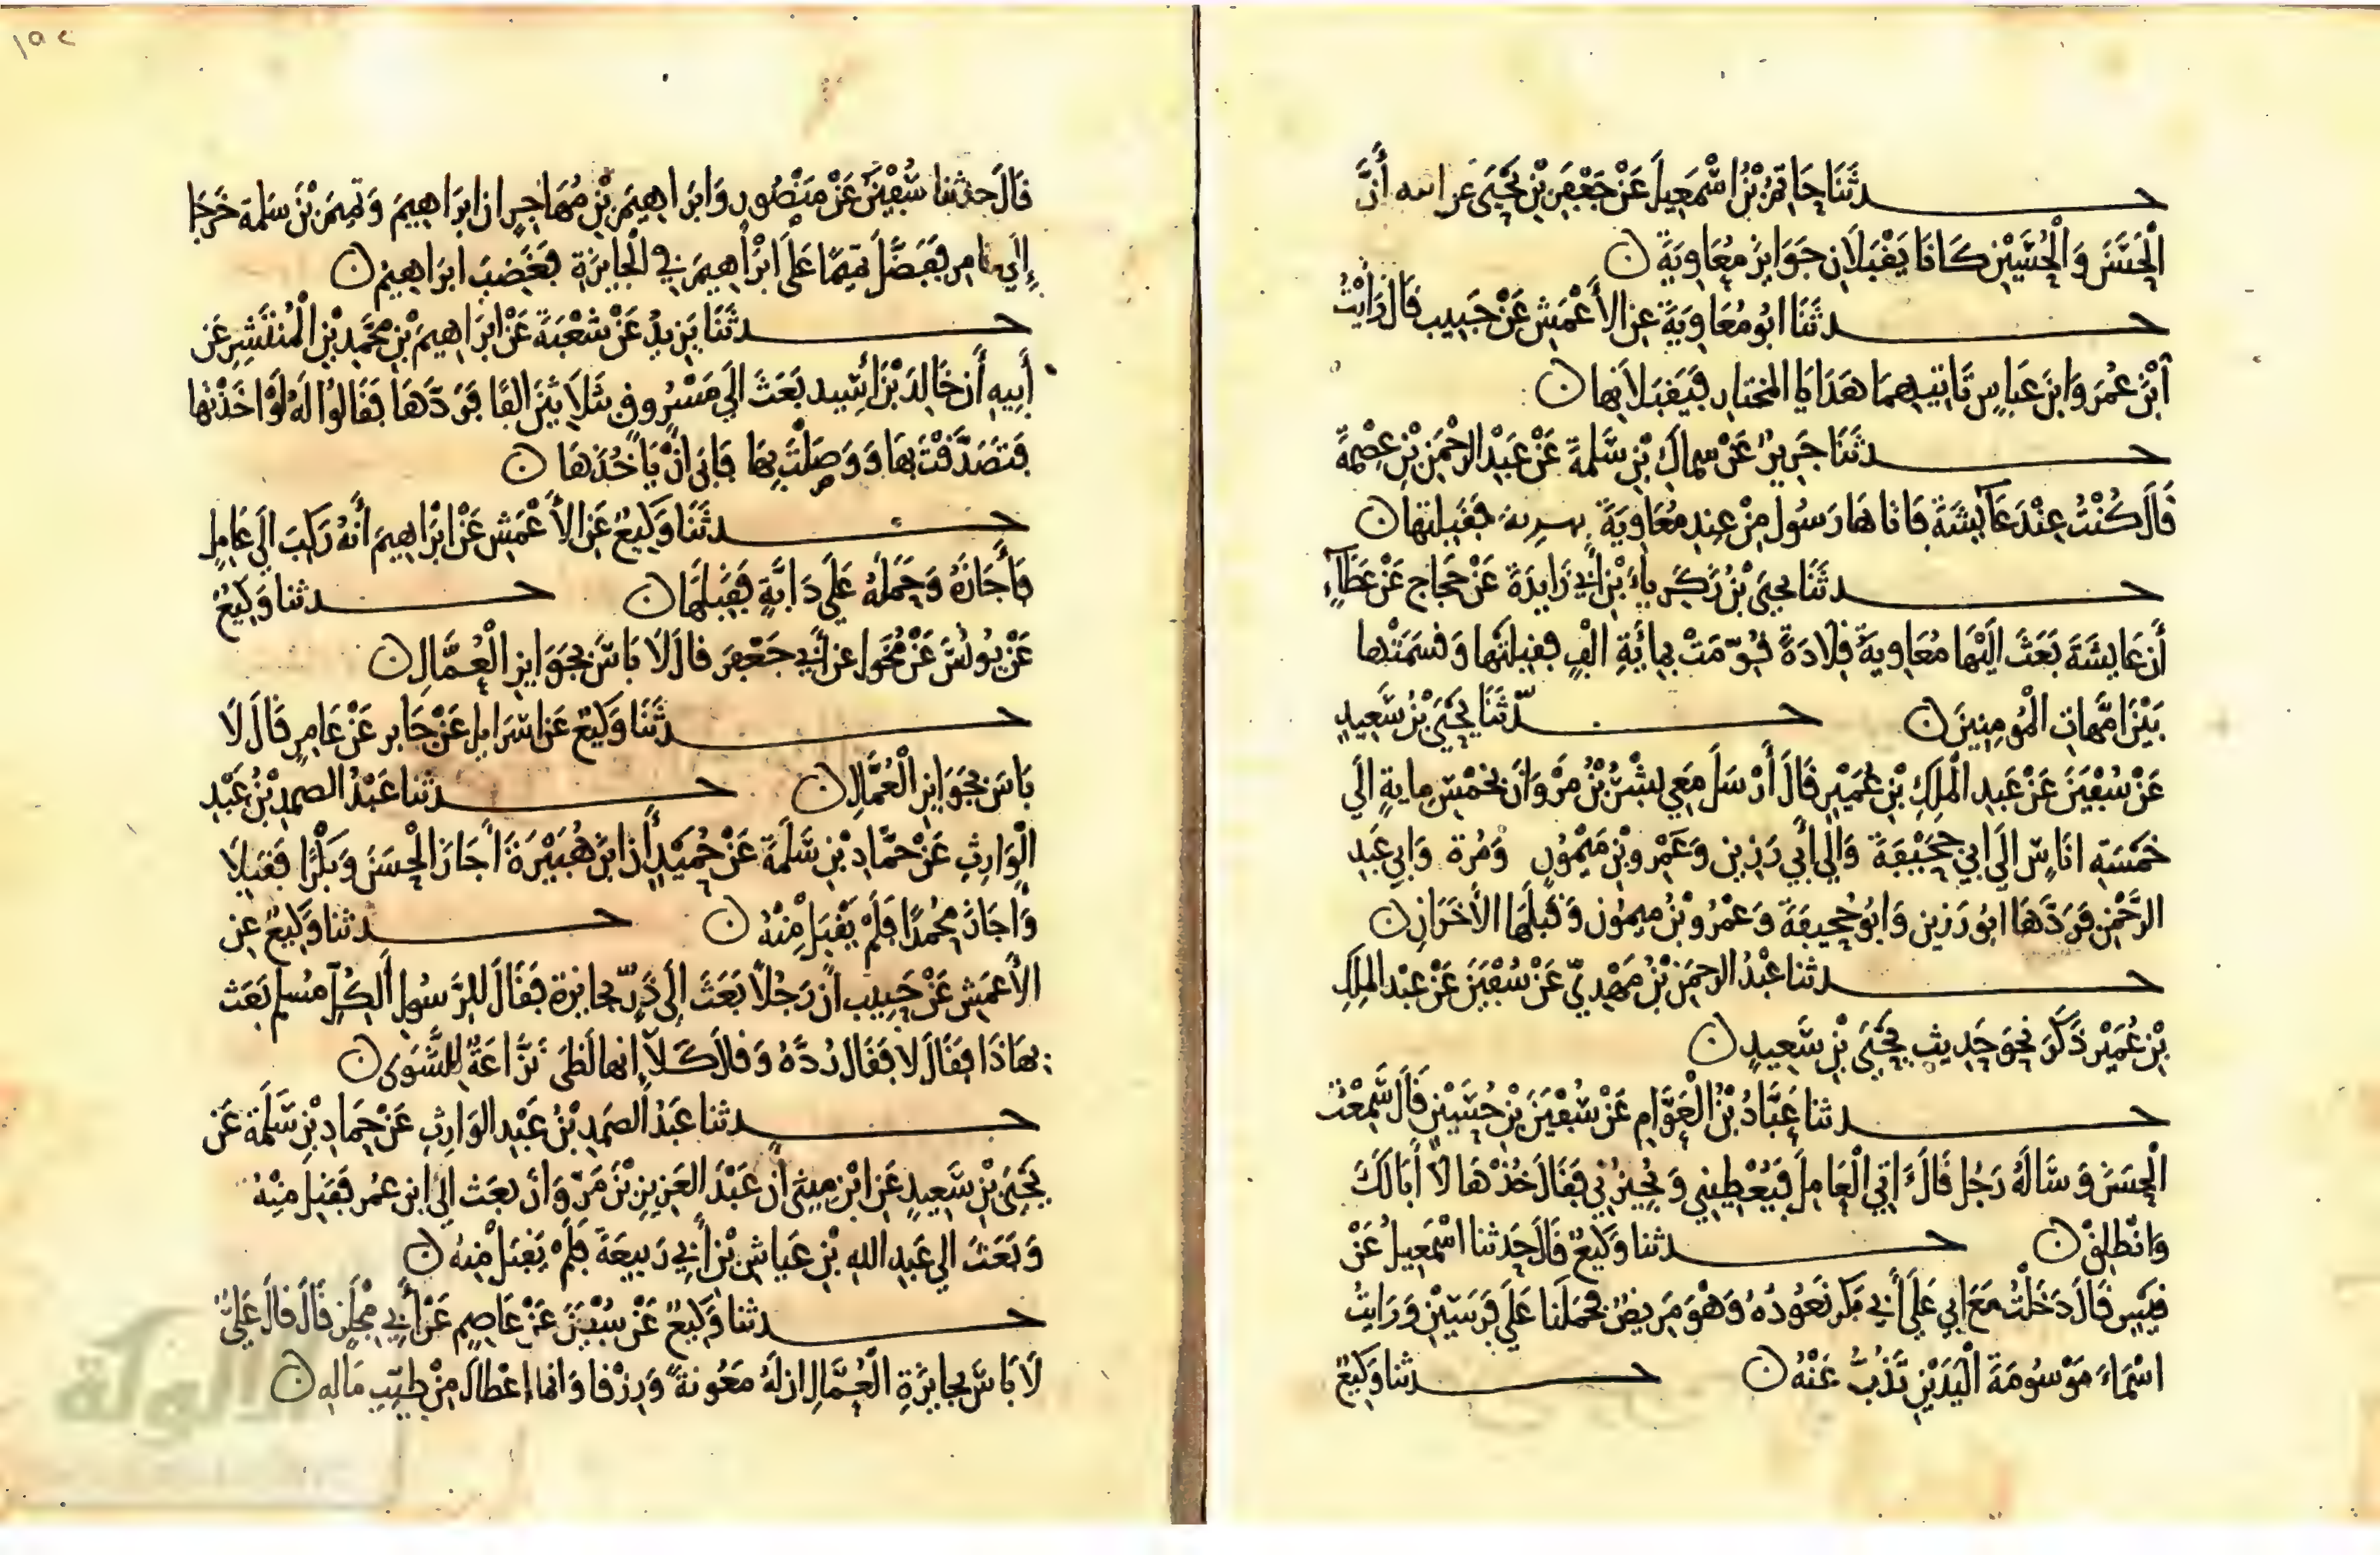 حدثنا حاتم بن اسمعيل عن جعفر بن يحيى عن ابيه أن
الحسن والحسين كانا يقبلان جوايز معاوية
حدثنا ابو معاوية عن الأعمش عن حبيب قال رأيت
ابن عمر وابن عباس تاتيهما هدايا المختار فيقبلانها
حدثنا جرير عن سماك بن سلمة عن عبد الرحمن بن عصمة
قال كنت عند عائشة فاتاها رسول من عند معاوية بهدية فقبلتها
حدثنا يحيى بن زكرياء بن أبي زايدة عن حجاج عن عطاء
أن عايشة بعث اليها معاوية قلادة قومت بمائة الف فقبلتها وقسمتها
بين امهات المومنين حدثنا يحيى بن سعيد
عن سفين عن عبد الملك بن عمير قال أرسل معي بشر بن مروان بخمس ماية الى
خمسة اناس الى ابي جحيفة والى أبي رزين وعمرو بن ميمون ومرة وابي عبد
الرحمن فردها ابو رزين وابو جحيفة وعمرو بن ميمون وقبلها الأخران
حدثنا عبد الرحمن بن مهدي عن سفين عن عبد الملك
بن عمير ذكر نحو حديث يحيى بن سعيد
حدثنا عباد بن العوام عن سفين بن حسين قال سمعت
الحسن وساله رجل قال ءاتي العامل فيعطيني ويجيزني فقال خذها لا أبا لك
وانطلق حدثنا وكيع قال حدثنا اسمعيل عن
قيس قال دخلت مع ابي على أبي بكر نعوده وهو مريض فحملنا على فرسين ورايت
اسماء موسومة اليدين تذب عنه حدثنا وكيع
قال حدثنا سفين عن منصور وابراهيم بن مهاجر ان ابراهيم وتميم بن سلمة خرجا
إلى عامر ففضل تميما على ابراهيم في الجايزة فغضب ابراهيم
حدثنا يزيد عن شعبة عن ابراهيم بن محمد بن المنتشر عن
أبيه أن خالد بن أسيد بعث الى مسروق بثلاثين الفا فردها فقالوا له لو اخذتها
فتصدقت بها ووصلت بها فابى ان ياخذها
حدثنا وكيع عن الأعمش عن ابراهيم أنه ركب الى عامل
فأجازه وحمله على دابة فقبلها حدثنا وكيع
عن يونس عن مخول عن أبي جعفر قال لا باس بجوايز العمال
حدثنا وكيع عن اسرايل عن جابر عن عامر قال لا
باس بجوايز العمال حدثنا عبد الصمد بن عبد
الوارث عن حماد بن سلمة عن حميد أن ابن هبيرة أجاز الحسن وبكرا فقبلا
وأجاز محمدا فلم يقبل منه حدثنا وكيع عن
الأعمش عن حبيب ان رجلا بعث إلى ذر بجايزة فقال للرسول أكل مسلم بعث
بهاذا فقال لا فقال رده وقال كلا إنها لظى نزاعة للشوى
حدثنا عبد الصمد بن عبد الوارث عن حماد بن سلمة عن
يحيى بن سعيد عن ابن ميثى ان عبد العزيز بن مروان بعث إلى ابن عمر فقبل منه
وبعث الى عبد الله بن عياش بن أبي ربيعة فلم يقبل منه
حدثنا وكيع عن سفين عن عاصم عن أبي مجلز قال قال علي
لا باس بجايزة العمال ان له معونة ورزقا وانما اعطاك من طيب ماله
الألوكة